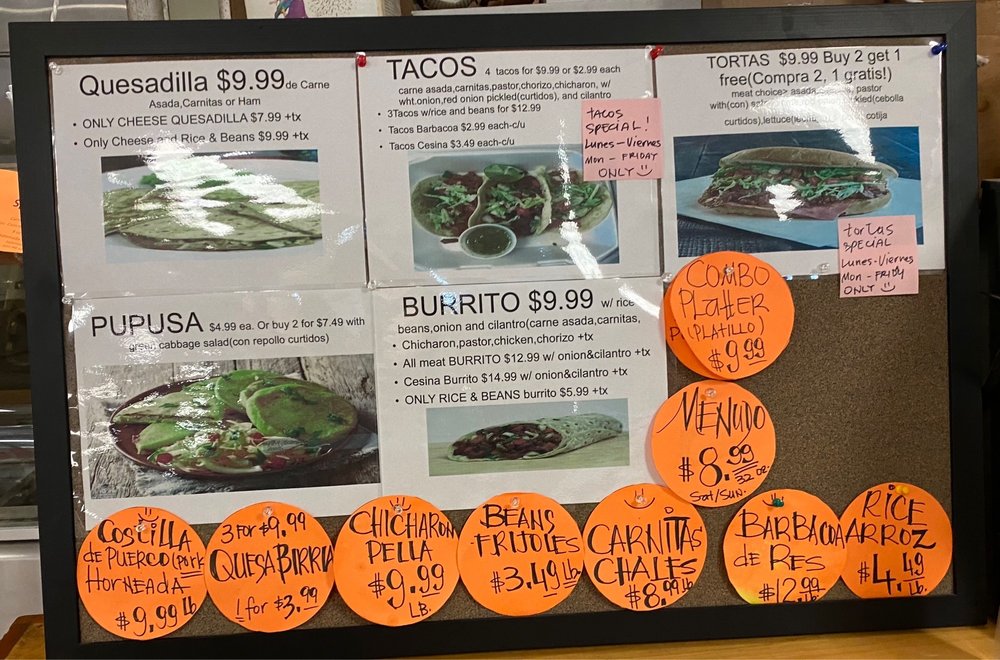 Quesadilla $9.99 de Carne
Asada,Carnitas or Ham
• ONLY CHEESE QUESADILLA $7.99 +tx
• Only Cheese and Rice & Beans $9.99 +tx
TACOS 4 tacos for $9.99 or $2.99 each
carne asada,carnitas,pastor,chorizo,chicharon, w/
wht.onion,red onion pickled(curtidos), and cilantro
• 3Tacos w/rice and beans for $12.99
• Tacos Barbacoa $2.99 each-c/u
• Tacos Cesina $3.49 each-c/u
tacos
SPECIAL!
Lunes-Viernes
Mon - FRIDAY
ONLY
TORTAS $9.99 Buy 2 get 1
free(Compra 2, 1 gratis!)
meat choice> asada, pastor
with(con) (cebolla
curtidos),lettuce cotija
tortas
SPECIAL
Lunes-Viernes
Mon - FRIDAY
ONLY
PUPUSA $4.99 ea. Or buy 2 for $7.49 with
green cabbage salad(con repollo curtidos)
BURRITO $9.99 w/ rice
beans,onion and cilantro(carne asada,carnitas,
• Chicharon,pastor,chicken,chorizo +tx
• All meat BURRITO $12.99 w/ onion&cilantro +tx
• Cesina Burrito $14.99 w/ onion&cilantro +tx
• ONLY RICE & BEANS burrito $5.99 +tx
COMBO
PLATTER
(PLATILLO)
$9.99
MENUDO
$8.99
32 oz.
Sat/Sun.
COSTILLA
de PUERCO(Pork
HORNEADA
$9.99 Lb
3 FOR $9.99
QUESABIRRIA
1 for $3.99
CHICHARON
PELLA
$9.99
LB.
BEANS
FRIJOLES
$3.49 lb
CARNITAS
CHALES
$8.99 lb
BARBACOA
de RES
$12.99
RICE
ARROZ
$4.49
Lb.